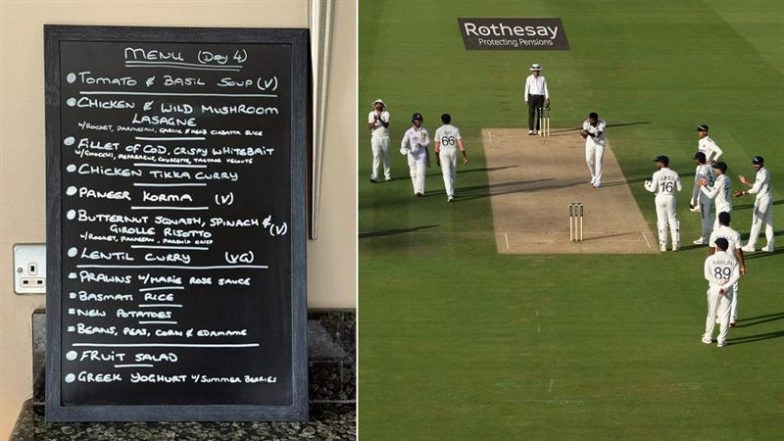 MENU (Day 4)
TOMATO & BASIL SOUP (V)
CHICKEN & WILD MUSHROOM
LASAGNE
W/ROCKET, PARMESAN, GARLIC & HERB CIABATTA SLICE
FILLET OF COD, CRISPY WHITEBAIT
W/GNOCCHI, ASPARAGUS, COURGETTE, TARTARE VELOUTÉ
CHICKEN TIKKA CURRY
PANEER KORMA (V)
BUTTERNUT SQUASH, SPINACH &
GIROLLE RISOTTO (V)
W/ROCKET, PARMESAN, PARSNIP CRISP
LENTIL CURRY (VG)
PRAWNS W/MARIE ROSE SAUCE
BASMATI RICE
NEW POTATOES
BEANS, PEAS, CORN & EDAMAME
FRUIT SALAD
GREEK YOGHURT W/SUMMER BERRIES
Rothesay
Protecting Pensions
66
16
89